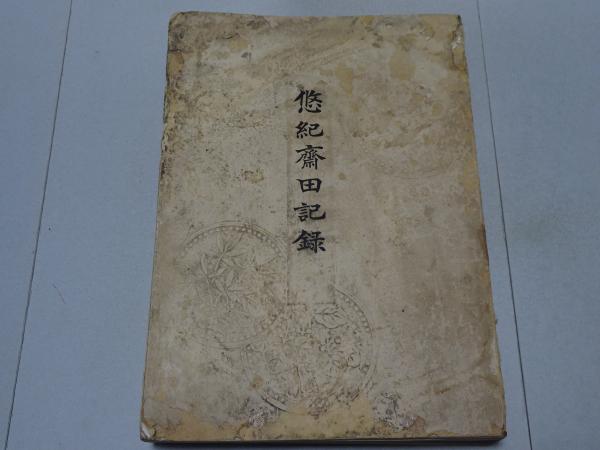 悠紀齋田記錄